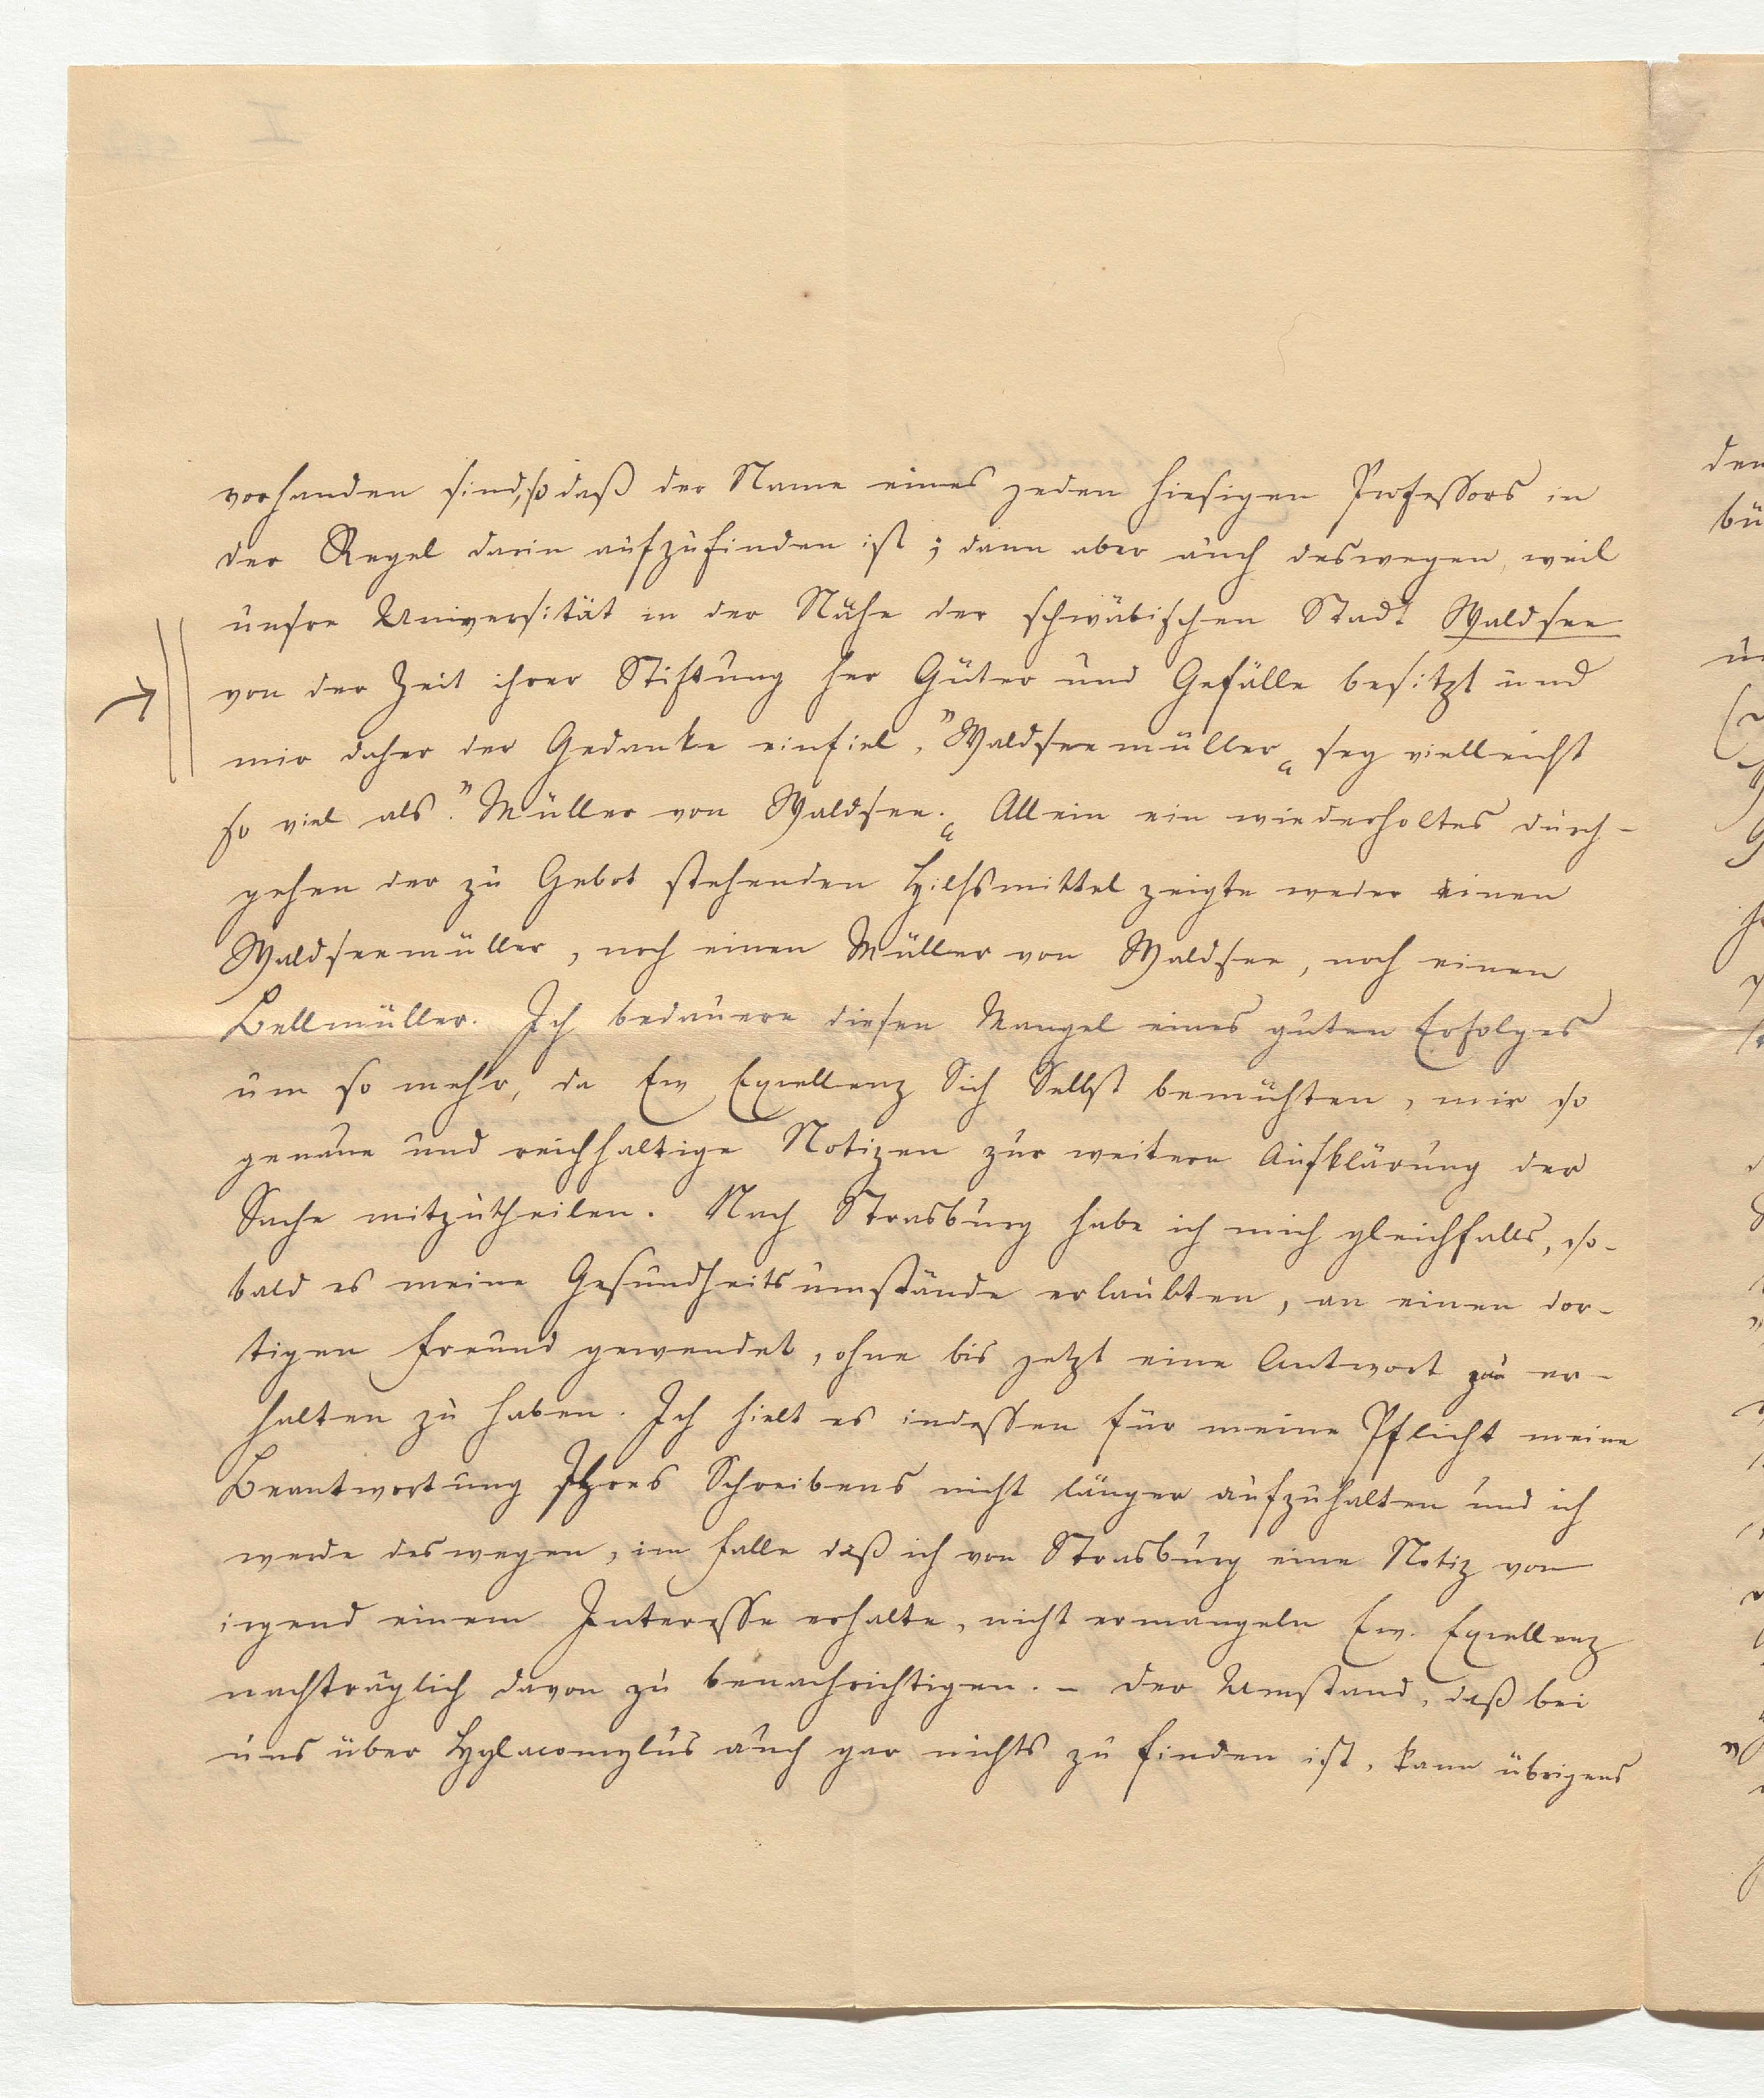 vorhanden sind, so daß der Name eines jeden hiesigen Professors in
der Regel darin aufzufinden ist; dann aber auch deswegen, weil
unsre Universität in der Nähe der schwäbischen Stadt Waldsee
von der Zeit ihrer Stiftung her Güter und Gefälle besitzt und
mir daher der Gedanke einfiel, "Waldseemüller" sey vielleicht
so viel als "Müller von Waldsee." Allein ein wiederholtes durch-
gehen der zu Gebot stehenden Hilfsmittel zeigte weder einen
Waldseemüller, noch einen Müller von Waldsee, noch einen
Bellmüller. Ich bedauere diesen Mangel eines guten Erfolges
um so mehr, da Ew Excellenz Sich Selbst bemühten, mir so
genaue und reichhaltige Notizen zur weitern Aufklärung der
Sache mitzutheilen. Nach Strasburg habe ich mich gleichfalls, so-
bald es meine Gesundheitsumstände erlaubten, an einen dor-
tigen Freund gewendet, ohne bis jetzt eine Antwort er-
halten zu haben. Ich hielt es indessen für meine Pflicht meine
Beantwortung Ihres Schreibens nicht länger aufzuhalten und ich
werde deswegen, im Falle daß ich von Strasburg eine Notiz von
irgend einem Interesse erhalte, nicht ermangeln Ew. Excellenz
nachträglich davon zu benachrichtigen. – Der Umstand, daß bei
uns über Hylacomylus auch gar nichts zu finden ist, kann übrigens